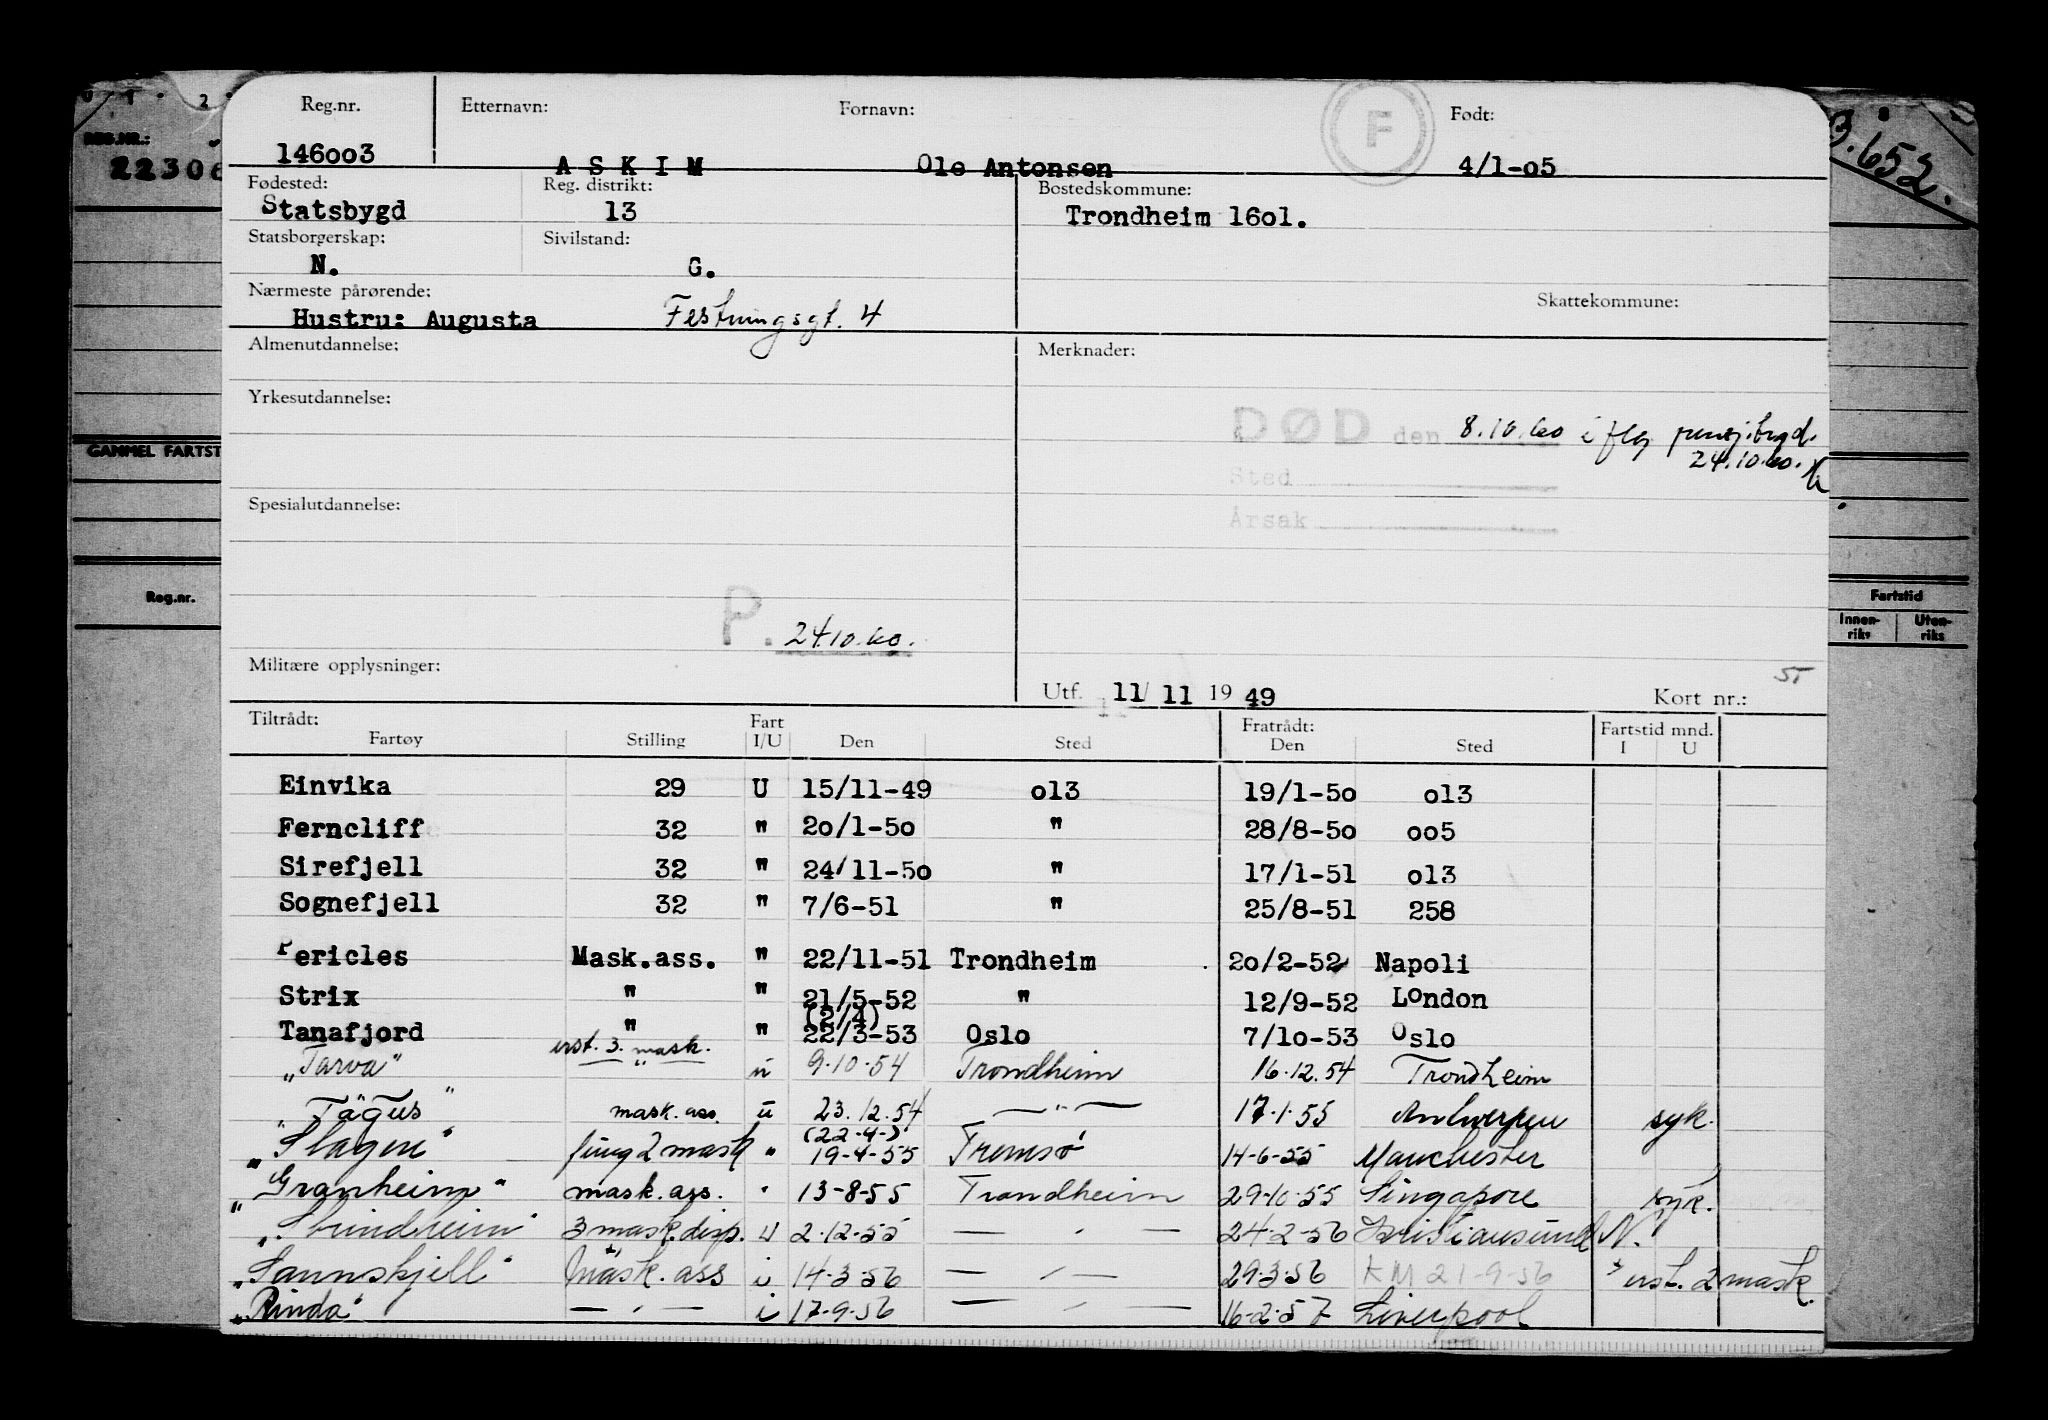 Reg.nr. Etternavn: Fornavn: F Født:
146oo3 A S K I M Ole Antonsen 4/1-o5
REG.NR.:
3.652.
Fødested: Reg. distrikt: Bostedskommune:
Statsbygd 13 Trondheim 16o1.
Statsborgerskap: Sivilstand:
N. G.
Nærmeste pårørende: Skattekommune:
Hustru: Augusta Festningsgt. 4
Almenutdannelse: Merknader:
Yrkesutdannelse:
DØD den 8.10.60 i flg
24.10.60.
GAMMEL FARTST
Sted
Årsak
Spesialutdannelse:
Reg.nr. Fartstid
Innen-riks Uten-riks
P. 24.10.60.
Militære opplysninger:
Utf. 11/ 11 19 49 Kort nr.:
Tiltrådt: Fart Fratrådt: Fartstid mnd.
Fartøy Stilling I/U Den Sted Den Sted I U
Einvika 29 U 15/11-49 o13 19/1-5o o13
Ferncliff 32 " 2o/1-5o " 28/8-5o oo5
Sirefjell 32 " 24/11-5o " 17/1-51 o13
Sognefjell 32 " 7/6-51 " 25/8-51 258
Pericles Mask.ass. " 22/11-51 Trondheim 2o/2-52 Napoli
Strix " " 21/5-52 " 12/9-52 London
(2/4)
Tanafjord " " 22/3-53 Oslo 7/1o-53 Oslo
"Tarva" urst. 3. mask. u 9.10.54 Trondheim 16.12.54 Trondheim
"Tagus" mask. ass. u 23.12.54 — " — 17.1.55 Antwerpen syk.
(22-4-)
"Slagen" fung 2 mask " 19-4-55 Tromsø 14-6-55 Manchester
"Granheim" mask. ass. " 13-8-55 Trondheim 29-10-55 Singapore syk.
"Strindheim" 3 mask. disp. u 2-12-55 — " — 24-2-56 Kristiansund N.
"Sannskjell" Mask. ass i 14-3-56 — " — 29-3-56 KM 21-9-56 * urst. 2 mask.
"Rinda" — " — i 17-9-56 — " — 16-2-57 Liverpool